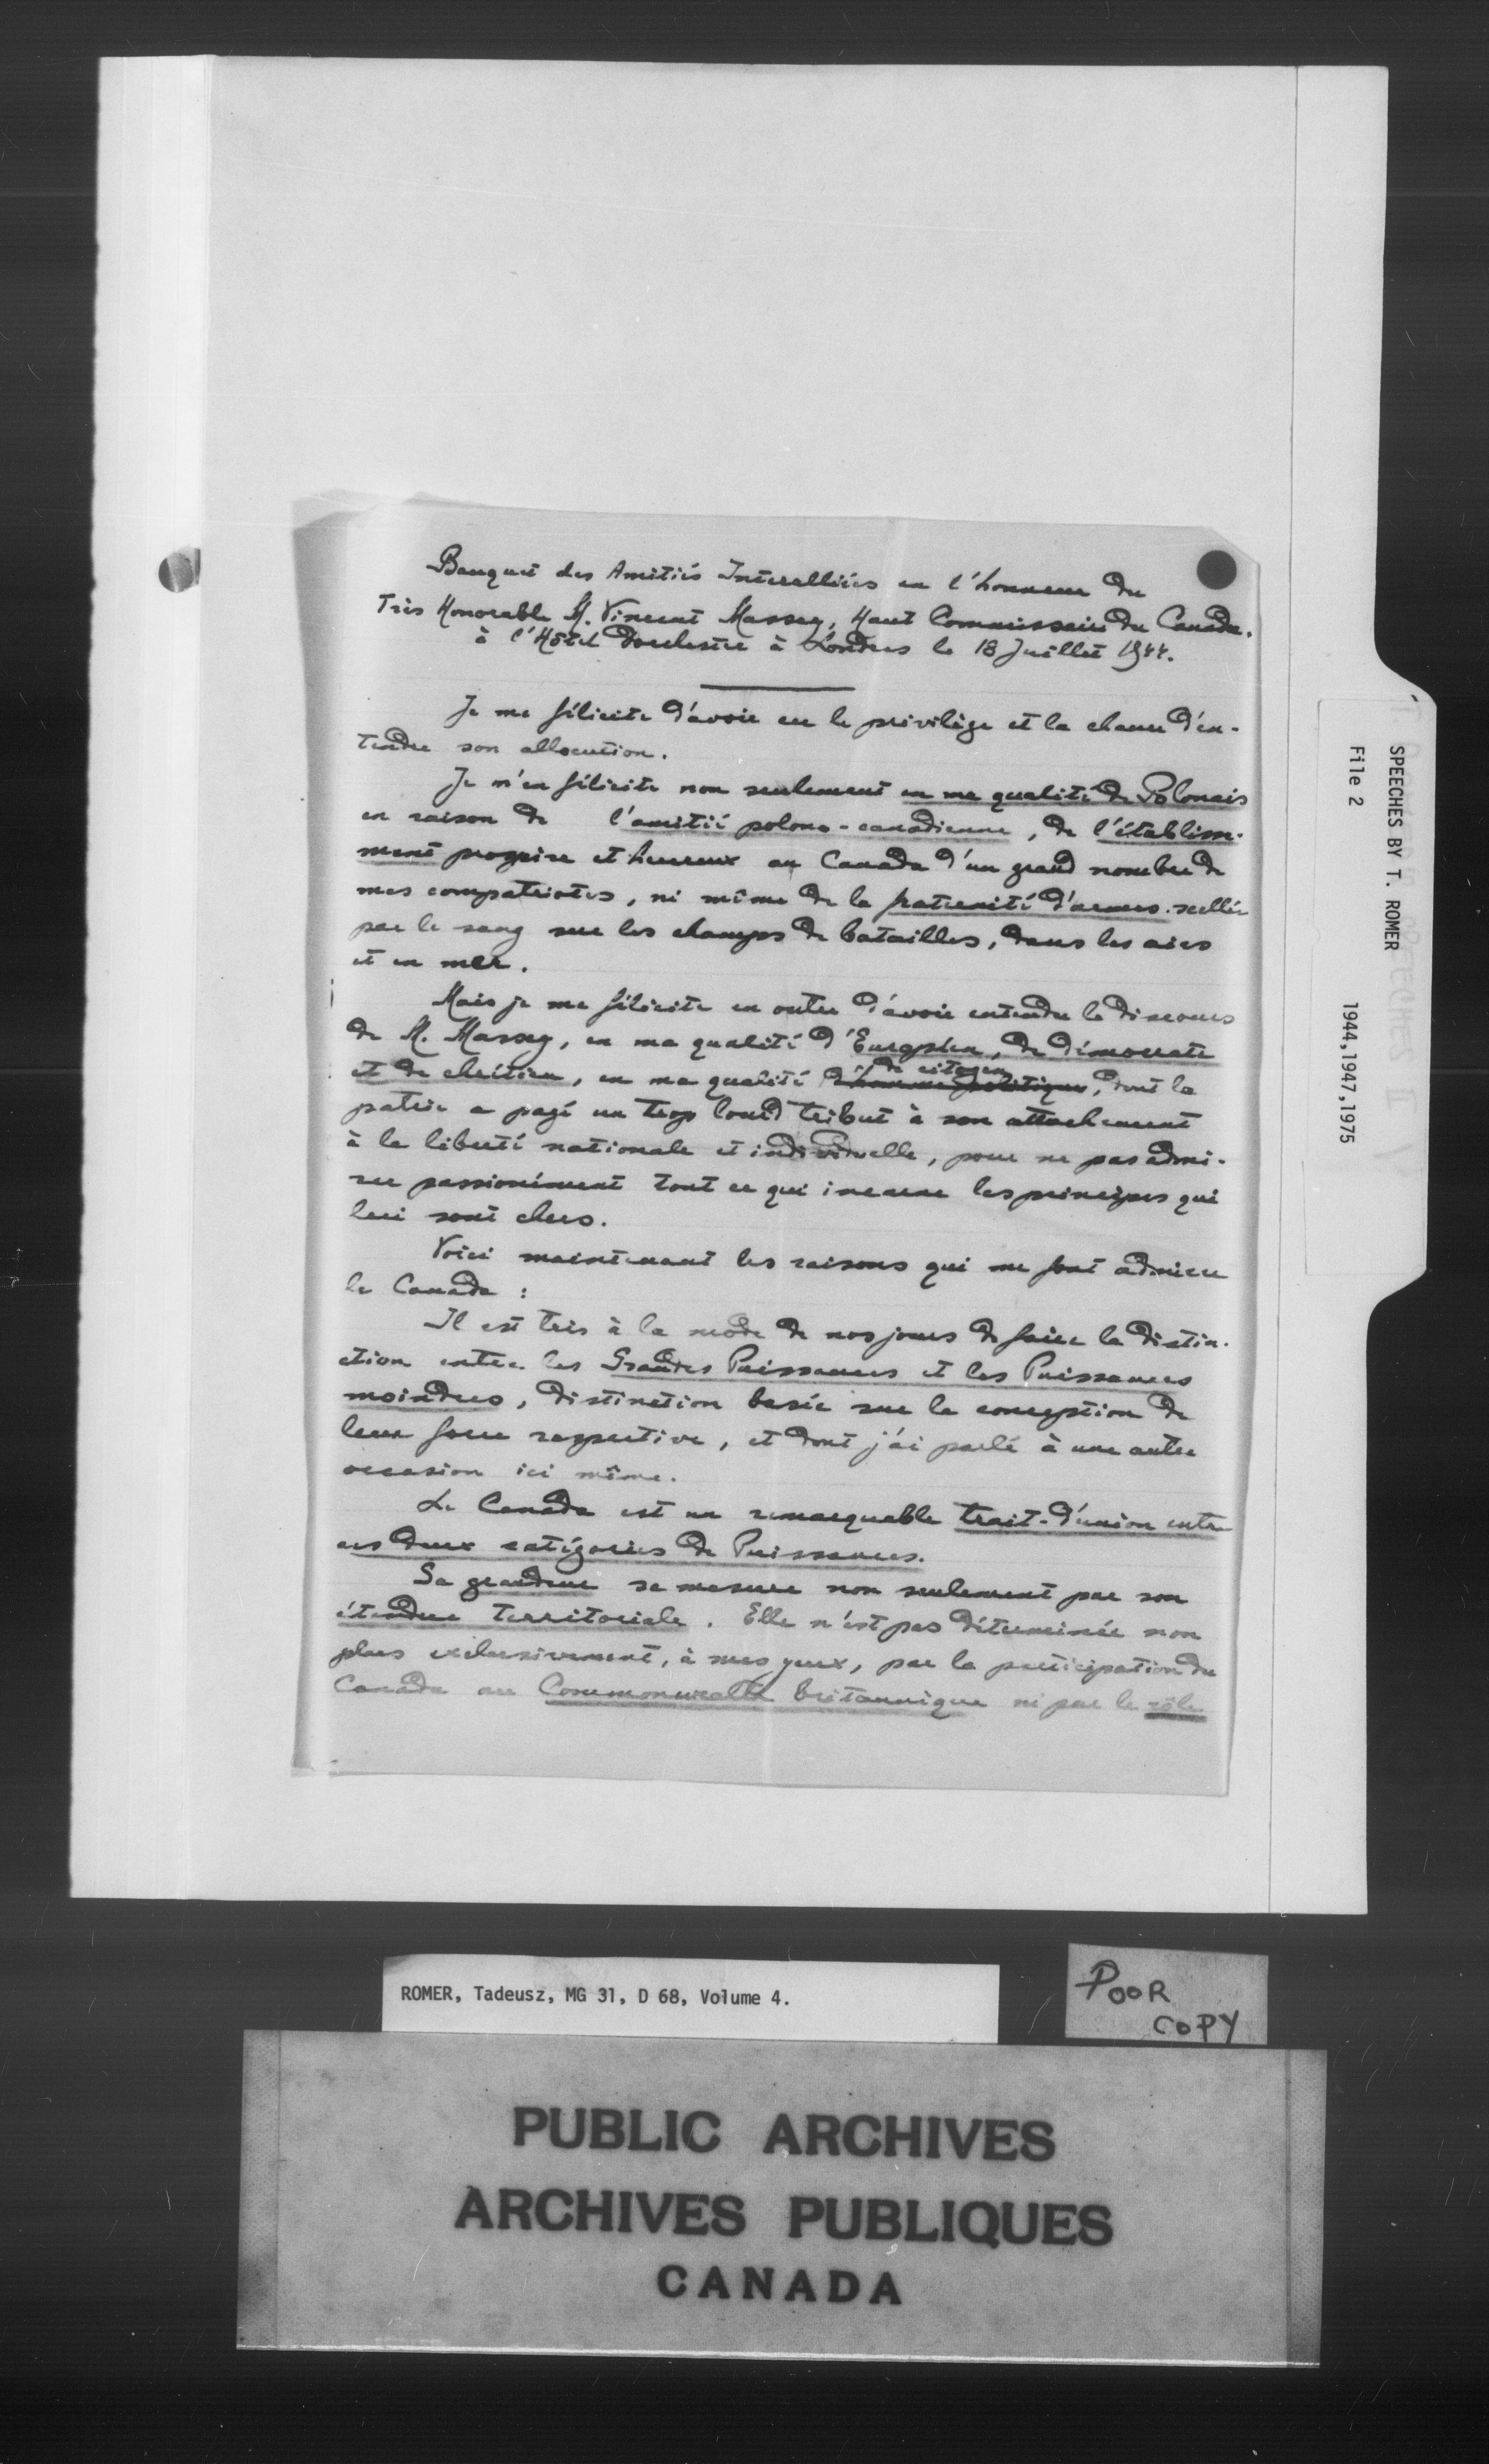 Banquet des Amitiés Interalliées en l'honneur du
Très Honorable M. Vincent Massey, Haut Commissaire du Canada,
à l'Hôtel Dorchester à Londres le 18 Juillet 1944.
Je me félicite d'avoir eu le privilège et la chance d'en-
tendre son allocution.
Je m'en félicite non seulement en ma qualité de Polonais
en raison de l'amitié polono-canadienne, de l'établisse-
ment prospère et heureux au Canada d'un grand nombre de
mes compatriotes, ni même de la fraternité d'armes scellée
par le sang sur les champs de batailles, dans les airs
et en mer.
Mais je me félicite en outre d'avoir entendu le discours
de M. Massey, en ma qualité d'Européen, de démocrate
et de chrétien, en ma qualité d'homme politique, dont la
de citoyen
patrie a payé un trop lourd tribut à son attachement
à la liberté nationale et individuelle, pour ne pas admi-
rer passionément tout ce qui incarne les principes qui
lui sont chers.
Voici maintenant les raisons qui me font admirer
le Canada :
Il est très à la mode de nos jours de faire la distin-
ction entre les Grandes Puissances et les Puissances
moindres, distinction basée sur la conception de
leur force respective, et dont j'ai parlé à une autre
occasion ici même.
Le Canada est un remarquable trait-d'union entre
ces deux catégories de Puissances.
Sa grandeur se mesure non seulement par son
étendue territoriale. Elle n'est pas déterminée non
plus exclusivement, à mes yeux, par la participation du
Canada au Commonwealth britannique ni par le rôle
SPEECHES BY T. ROMER 1944,1947,1975
File 2
ROMER, Tadeusz, MG 31, D 68, Volume 4.
POOR
COPY
PUBLIC ARCHIVES
ARCHIVES PUBLIQUES
CANADA